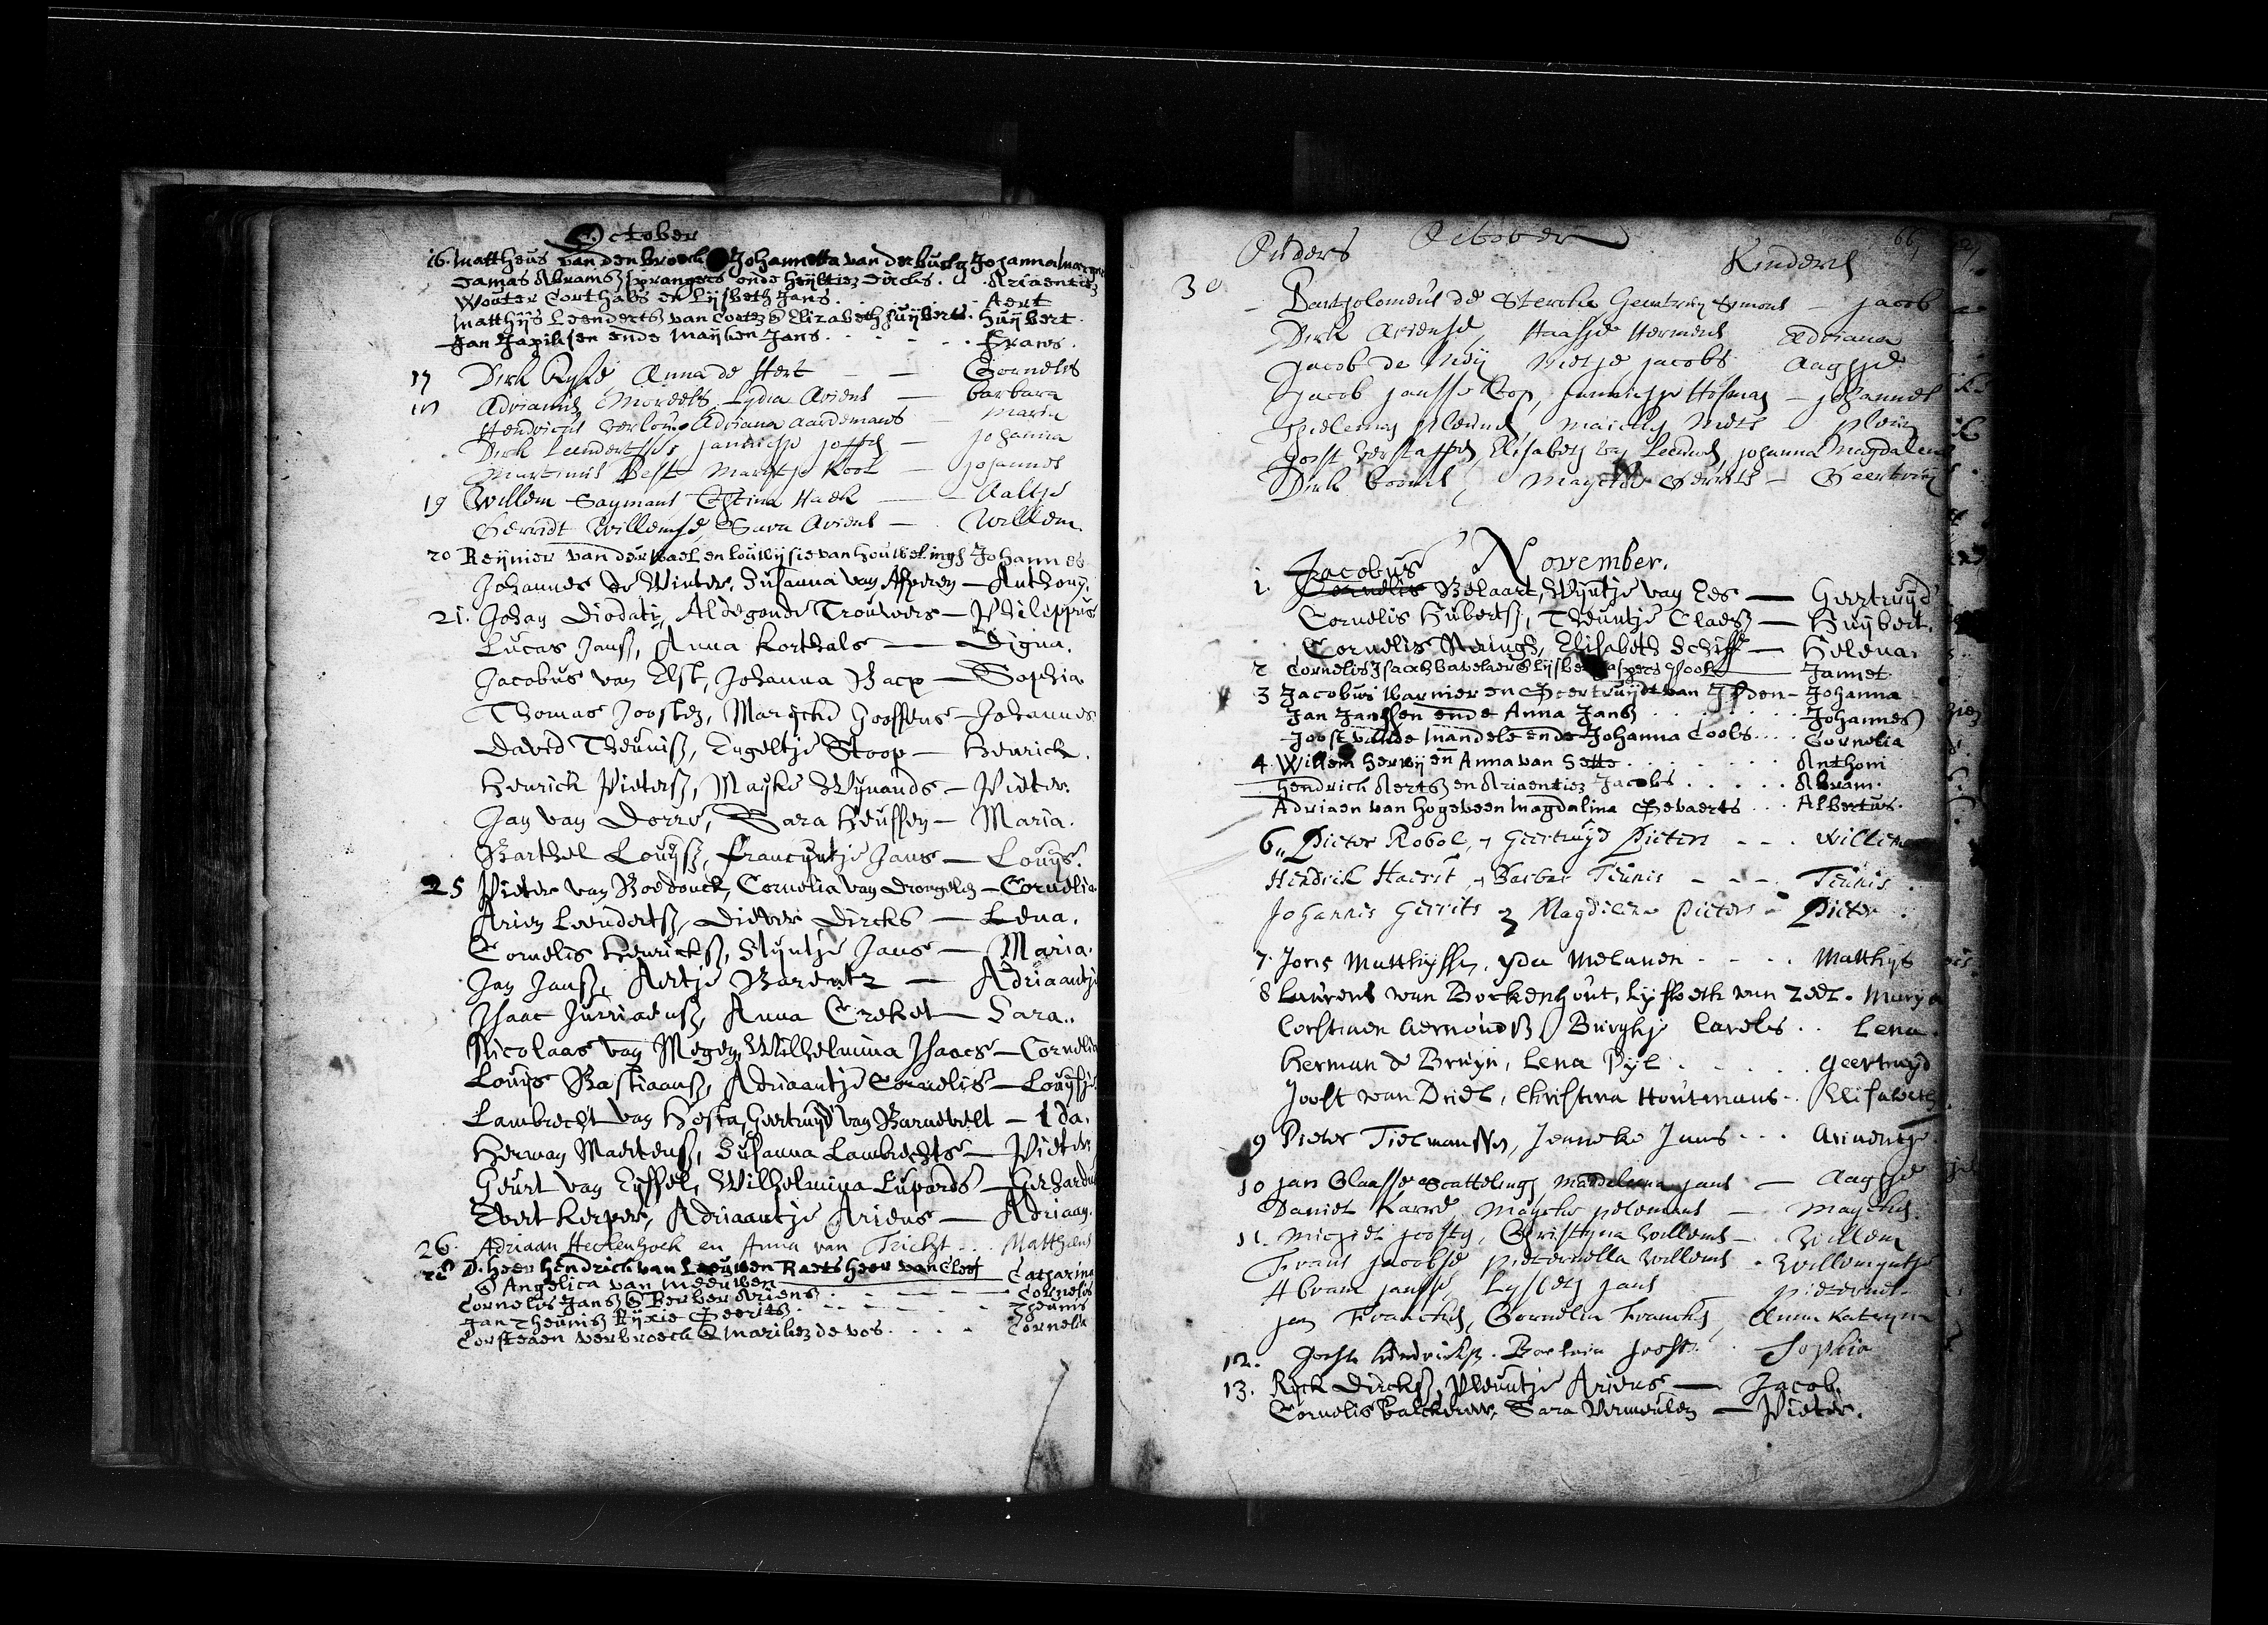 October
16. Mattheus van den broeck Johannetta van der burg Johanna
Damas Abramsz sprangers ende heyltiez Dircks. Ariaentiez
Wouter Corthals en Lijsbeth Jans. Aert
Matthijs Leendertsz van Coetez & Elizabeth huijberts. huijbert.
Jan Japiksen ende Mayken Jans. . . . . . Frans.
17 Dirk Ryke, Anna de Hert — — Cornelis
Adrianus Moreels, Lydia Ariens — barbara
Hendricus Verlou, Adriana aardemans Maria
Dirk Leendertsse, Jannichje — Johanna
Martinus Best Marytje Kool — Johannes
19 Willem Saymans Stina Haek — Aaltje
Gerridt Willemse, Sara Ariens — Willem.
20 Reijnier van der wael en Louwijsie van houwelingh Johannes
Johannes de Winter, Susanna van Asperen — Anthony.
21. Johan Diodati, Aldegonde Trouwers — Philippus
Lucas Jansz, Anna Korthals — Digna.
Jacobus van Elst, Johanna Bacx — Sophia
Thomas Joosten, Marijcke Goossens — Johannes
David Theunisz, Engeltje Stoop — Henrick.
Henrick Pietersz, Mayke Wynands — Pieter.
Jan van Dorre, Sara Heussen — Maria.
Barthel Louysz, Francyntje Jans — Louys.
25 Pieter van Boedonck, Cornelia van Drongelen — Cornelia
Arien Leendertsz, Diever Dircks — Lena.
Cornelis Henricksz, Stijntje Jans — Maria.
Jan Jansz, Aertje Barentz — Adriaantje
Isaac Jurriaensz, Anna Creket — Sara.
Nicolaas van Megen, Wilhelmina Isaacs — Cornelia
Louys Bastiaansz, Adriaantje Cornelis — Louysje
Lambrecht van Hosta, Geertruyd van Barnevelt — Ida.
Herman Maertensz, Susanna Lambrechts — Pieter
Geurt van Eyssel, Wilhelmina Lupards — Gerhardus
Evert Kerper, Adriaantje Ariens — Adriaan.
26. Adriaan Heckenhoek en Anna van Tricht . . . Mattheus
28 D. Heer Hendrick van Leeuwen Raets heer van Cleef
& Angelica van Meeuwen — Catharina
Cornelis Jansz & Berber Ariens — Cornelis
Jan Theunisz Rijxie Geerits. Theunis
Corsteaen verbroeck & Mariken de vos. . . . . Cornelia
Ouders October Kinderen 66
30 Bartholomeus de Sterke, Geertruy Symons — Jacob
Dirk Ariense, Haasje Hermens Adriana
Jacob de Mey Nietje Jacobs Aagtje
Jacob Jansse Cop, Jannichje Hofman — Johannes
Tieleman Pleunen, Maichen — Pleun
Joost Verstappen, Elisabeth van Leeuwen, Johanna Magdalena
Dirk Mayche Gerrits — Geertruy
November.
Jacobus
1. Cornelis Belaart, Wyntje van Ees — Geertruyd
Cornelis Hubertsz, Theuntje Claesz — Huybert.
Cornelis Neringh, Elisabeth Schiff — Helena.
2 Cornelis Isackz Lijsbet Caspers Pool Jannet.
3 Jacobus Warnier en Geertruijdt van IJsden - Johanna
Jan Janssen ende Anna Jans . . . . . Johannes
Joost vande Mandele ende Johanna Cools. . . . Cornelia
4 Willem herwij en Anna van Sette . . . . . Anthoni
Hendrich Aertsz en Ariaentiez Jacobs . . . . . Abram.
Adriaen van Hogeveen Magdalina Gevaerts . . . Albertus.
6 Pieter Robol, Geertruyd Pieters - - - Willem
Hendrik Haerst, Barbar Teunis - - - Teunis.
Johannis Gerrits Magdilena Pieters - Pieter
7. Joris Matthijssen, yda Melanen . . . . Matthijs
8 Laurens van Bockenhout, Lijsbeth van Zeel. Marya
Corstiaen aernoudsz, Burghje Carels . . Lena.
Herman de Bruyn, Lena Pyl . . . . . geertruyd
Joost van Driel, Christina Houtmans . . Elisabeth.
9 Pieter Tielmanssen, Jenneke Jans . . . Ariaentje
10 Jan Claasse Scattelingh, Maddaleena Jans — Aagtje
Daniel Karré, Mayche pelemans — Mayche
11. Michiel Joosten, Christyna Willems — Willem
Frans Jacobse Pieternella Willems . Willemyntje
Abram Janssen, Lysbeth Jans — Pieternel.
Jan Francken, Cornelia Francken, Anna Katryna
12. Joost hendricksz. Barbara Joost . Sophia
13. Ryck Dircksz, Pleuntje Ariens — Jacob.
Cornelis balckeren, Sara Vermeulen — Pieter.